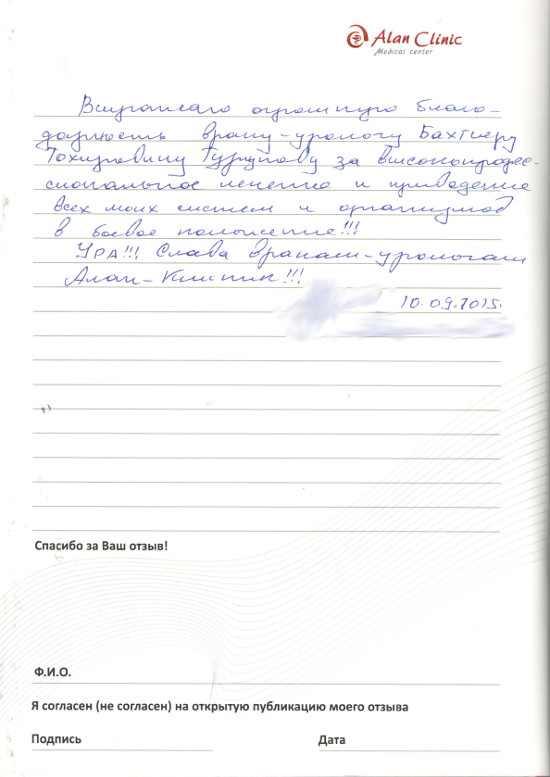 Alan Clinic
Medical center
Выражаю огромную благо-
дарность врачу-урологу Бахтиеру
Тохировичу за высокопрофес-
сиональное лечение и приведение
всех моих систем и организмов
в боевое положение!!!
Ура!!! Слава врачам-урологам
Алан-Клиник!!!
10.09.2015.
Спасибо за Ваш отзыв!
Ф.И.О.
Я согласен (не согласен) на открытую публикацию моего отзыва
Подпись Дата